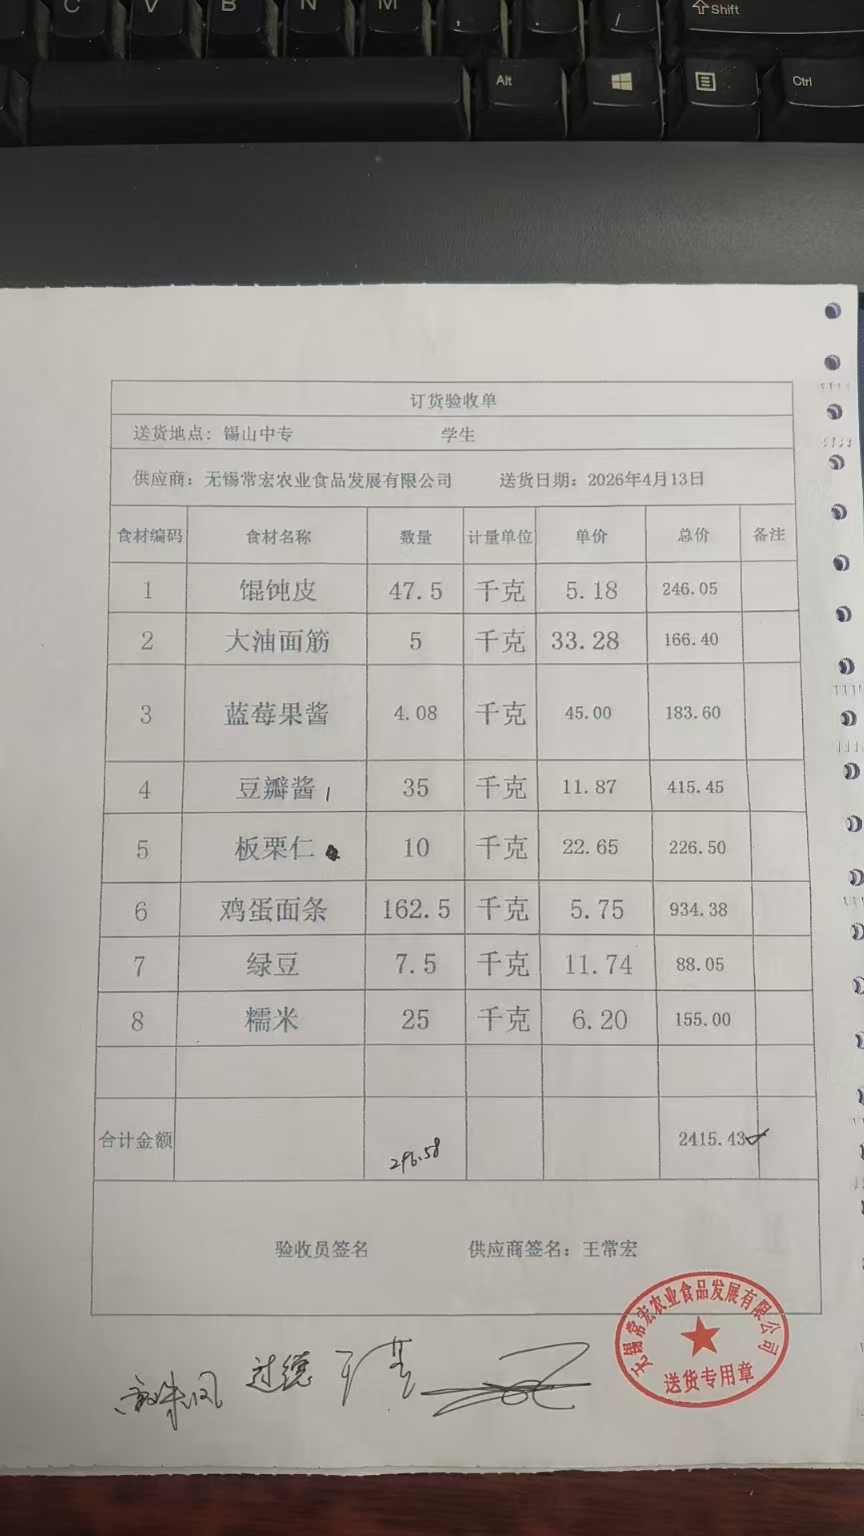 C V B N M , . /
⇧Shift
Alt Ctrl
订货验收单
送货地点：锡山中专 学生
供应商：无锡常宏农业食品发展有限公司 送货日期：2026年4月13日
食材编码 食材名称 数量 计量单位 单价 总价 备注
1 馄饨皮 47.5 千克 5.18 246.05
2 大油面筋 5 千克 33.28 166.40
3 蓝莓果酱 4.08 千克 45.00 183.60
4 豆瓣酱 35 千克 11.87 415.45
5 板栗仁 10 千克 22.65 226.50
6 鸡蛋面条 162.5 千克 5.75 934.38
7 绿豆 7.5 千克 11.74 88.05
8 糯米 25 千克 6.20 155.00
合计金额 296.58 2415.43
验收员签名 供应商签名：王常宏
无锡常宏农业食品发展有限公司
送货专用章